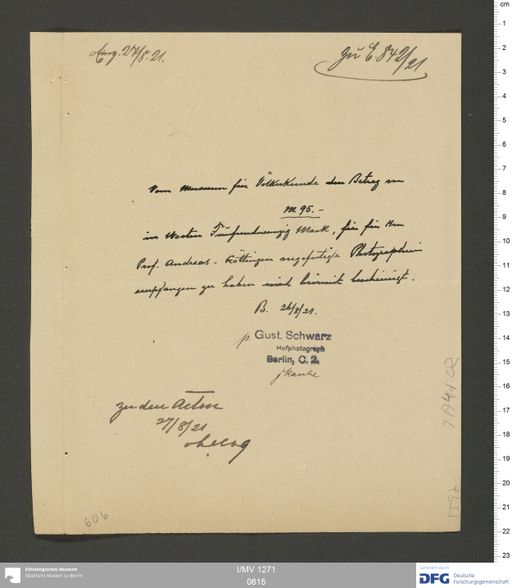 Eing. 27/8.21.
zu E. 842/21
Vom Museum für Völkerkunde den Betrag von
M 95.-
in Worten Fünfundneunzig Mark, für für Hrn
Prof. Andreas - Göttingen angefertigte Photographien
empfangen zu haben wird hiermit bescheinigt.
B. 26/8/21.
Gust. Schwarz
Hofphotograph
Berlin, C. 2,
zu den Acten
27/8/21
606
I/MV 1271
0615
Ethnologisches Museum
Staatliche Museen zu Berlin
Gefördert durch
DFG Deutsche
Forschungsgemeinschaft
cm
1
2
3
4
5
6
7
8
9
10
11
12
13
14
15
16
17
18
19
20
21
22
23